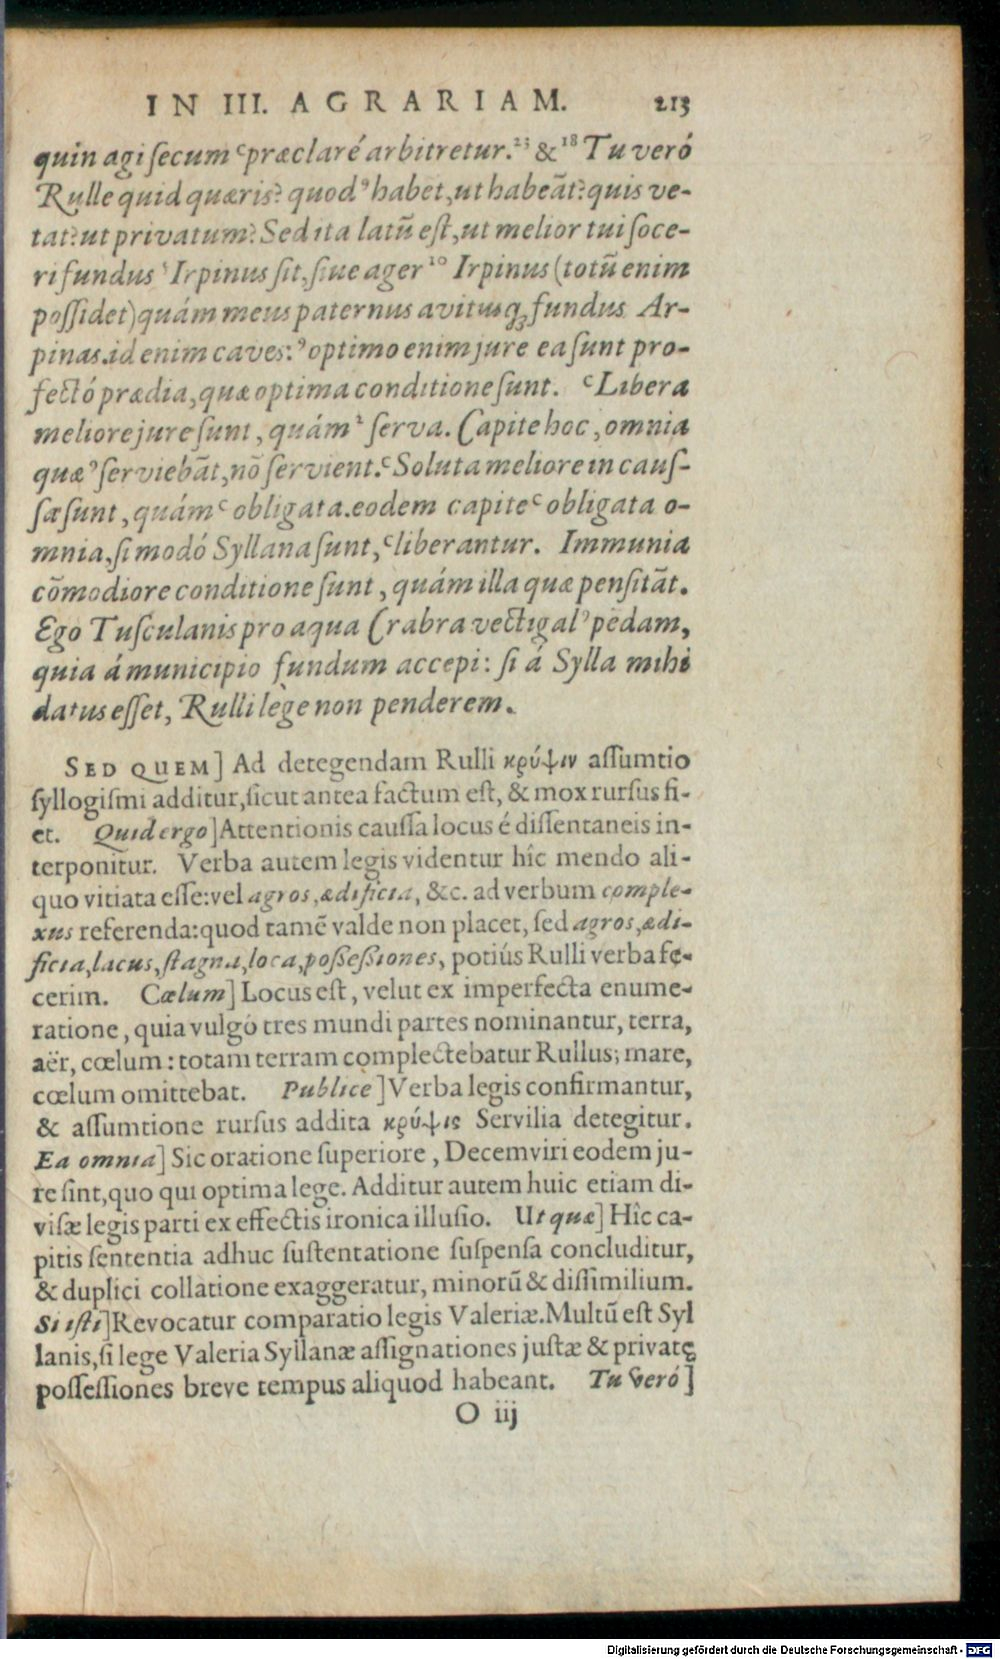 IN III. AGRARIAM. 213
quin agi secum ᶜpræclaré arbitretur.²³ &¹⁸ Tu veró
Rulle quid quæris? quod ⁹habet, ut habeāt? quis ve-
tat? ut privatum? Sed ita latũ est, ut melior tui soce-
ri fundus ˢIrpinus sit, sive ager ¹⁰ Irpinus (totũ enim
possidet) quám meus paternus avitusq; fundus Ar-
pinas. id enim caves: ⁹optimo enim jure ea sunt pro-
fectó prædia, quæ optima conditione sunt. ᶜLibera
meliore jure sunt, quám ² serva. Capite hoc, omnia
quæ ⁹serviebāt, nō servient. ᶜSoluta meliore in caus-
sæ sunt, quám ᶜobligata. eodem capite ᶜobligata o-
mnia, si modó Syllana sunt, ᶜliberantur. Immunia
cōmodiore conditione sunt, quám illa quæ pensitāt.
Ego Tusculanis pro aqua Crabra vectigal ⁹pedam,
quia á municipio fundum accepi: si á Sylla mihi
datus esset, Rulli lege non penderem.
SED QUEM] Ad detegendam Rulli κρύψιν assumtio
syllogismi additur, sicut antea factum est, & mox rursus fi-
et. Quid ergo] Attentionis caussa locus é dissentaneis in-
terponitur. Verba autem legis videntur hîc mendo ali-
quo vitiata esse: vel agros, ædificia, &c. ad verbum comple-
xus referenda: quod tamē valde non placet, sed agros, ædi-
ficia, lacus, stagna, loca, possessiones, potiús Rulli verba fe-
cerim. Cœlum] Locus est, velut ex imperfecta enume-
ratione, quia vulgó tres mundi partes nominantur, terra,
aër, cœlum: totam terram complectebatur Rullus; mare,
cœlum omittebat. Publice] Verba legis confirmantur,
& assumtione rursus addita κρύψις Servilia detegitur.
Ea omnia] Sic oratione superiore, Decemviri eodem ju-
re sint, quo qui optima lege. Additur autem huic etiam di-
visæ legis parti ex effectis ironica illusio. Ut quæ] Hîc ca-
pitis sententia adhuc sustentatione suspensa concluditur,
& duplici collatione exaggeratur, minorũ & dissimilium.
Si isti] Revocatur comparatio legis Valeriæ. Multũ est Syl
lanis, si lege Valeria Syllanæ assignationes justæ & privatę
possessiones breve tempus aliquod habeant. Tu veró]
O iij
Digitalisierung gefördert durch die Deutsche Forschungsgemeinschaft - DFG